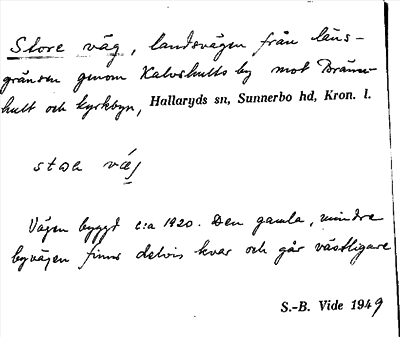 Store väg, landsvägen från läns-
gränsen genom Kalvshults by mot Bräne-
hult och kyrkbyn, Hallaryds sn, Sunnerbo hd, Kron. l.
Vägen byggd c:a 1920. Den gamla, mindre
byvägen finns delvis kvar och går västligare
S.-B. Vide 1949